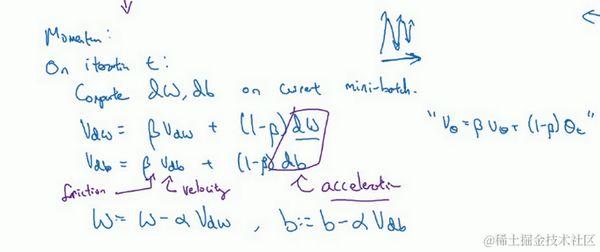 Momentum:
On iteration t:
Compute dW, db on current mini-batch.
Vdw = β Vdw + (1-β) dW
"Vθ = β Vθ + (1-β) θt"
Vdb = β Vdb + (1-β) db
friction velocity acceleration
W = W - α Vdw , b := b - α Vdb
@稀土掘金技术社区